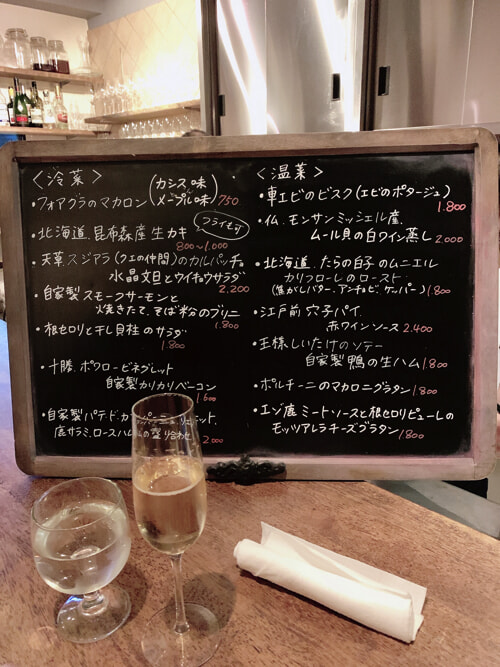 ＜冷菜＞
・フォアグラのマカロン(カシス味 メープル味) 750
・北海道、昆布森産 生カキ フライも可
800〜1,000
・天草、スジアラ(クエの仲間)のカルパッチョ
水晶文旦とウイキョウサラダ
2,200
・自家製スモークサーモンと
焼きたて、そば粉のブリニ
1,800
・根セロリと干し貝柱のサラダ
1,800
・十勝、ポワロービネグレット
自家製カリカリベーコン
1,600
・自家製パテド、カンパーニュ、リエット、
鹿サラミ、ロースハムの盛り合わせ
2,000
＜温菜＞
・車エビのビスク(エビのポタージュ)
1,800
・仏、モンサンミッシェル産、
ムール貝の白ワイン蒸し 2,000
・北海道、たらの白子のムニエル
カリフローレのロースト
(焦がしバター、アンチョビ、ケッパー) 1,800
・江戸前 穴子パイ、
赤ワインソース 2,400
・王様しいたけのソテー
自家製 鴨の生ハム 1,800
・ポルチーニのマカロニグラタン 1,800
・エゾ鹿ミートソースと根セロリピューレの
モッツアレラチーズグラタン 1,800